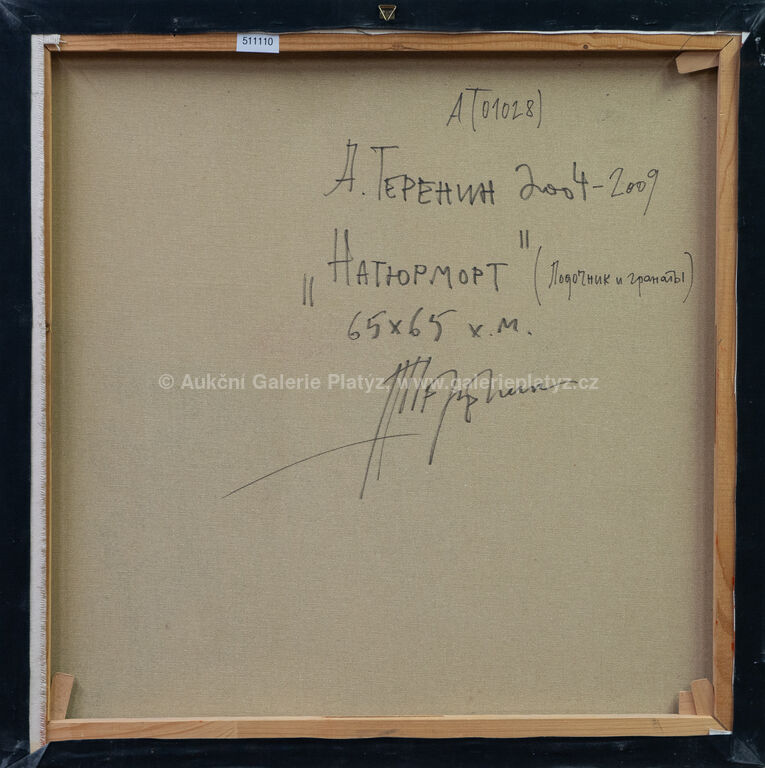 511110
АТ(01028)
А. ТЕРЕНИН 2004-2009
„НАТЮРМОРТ" (Лодочник и гранаты)
65х65 х.м.
© Aukční Galerie Platýz, www.galerieplatyz.cz